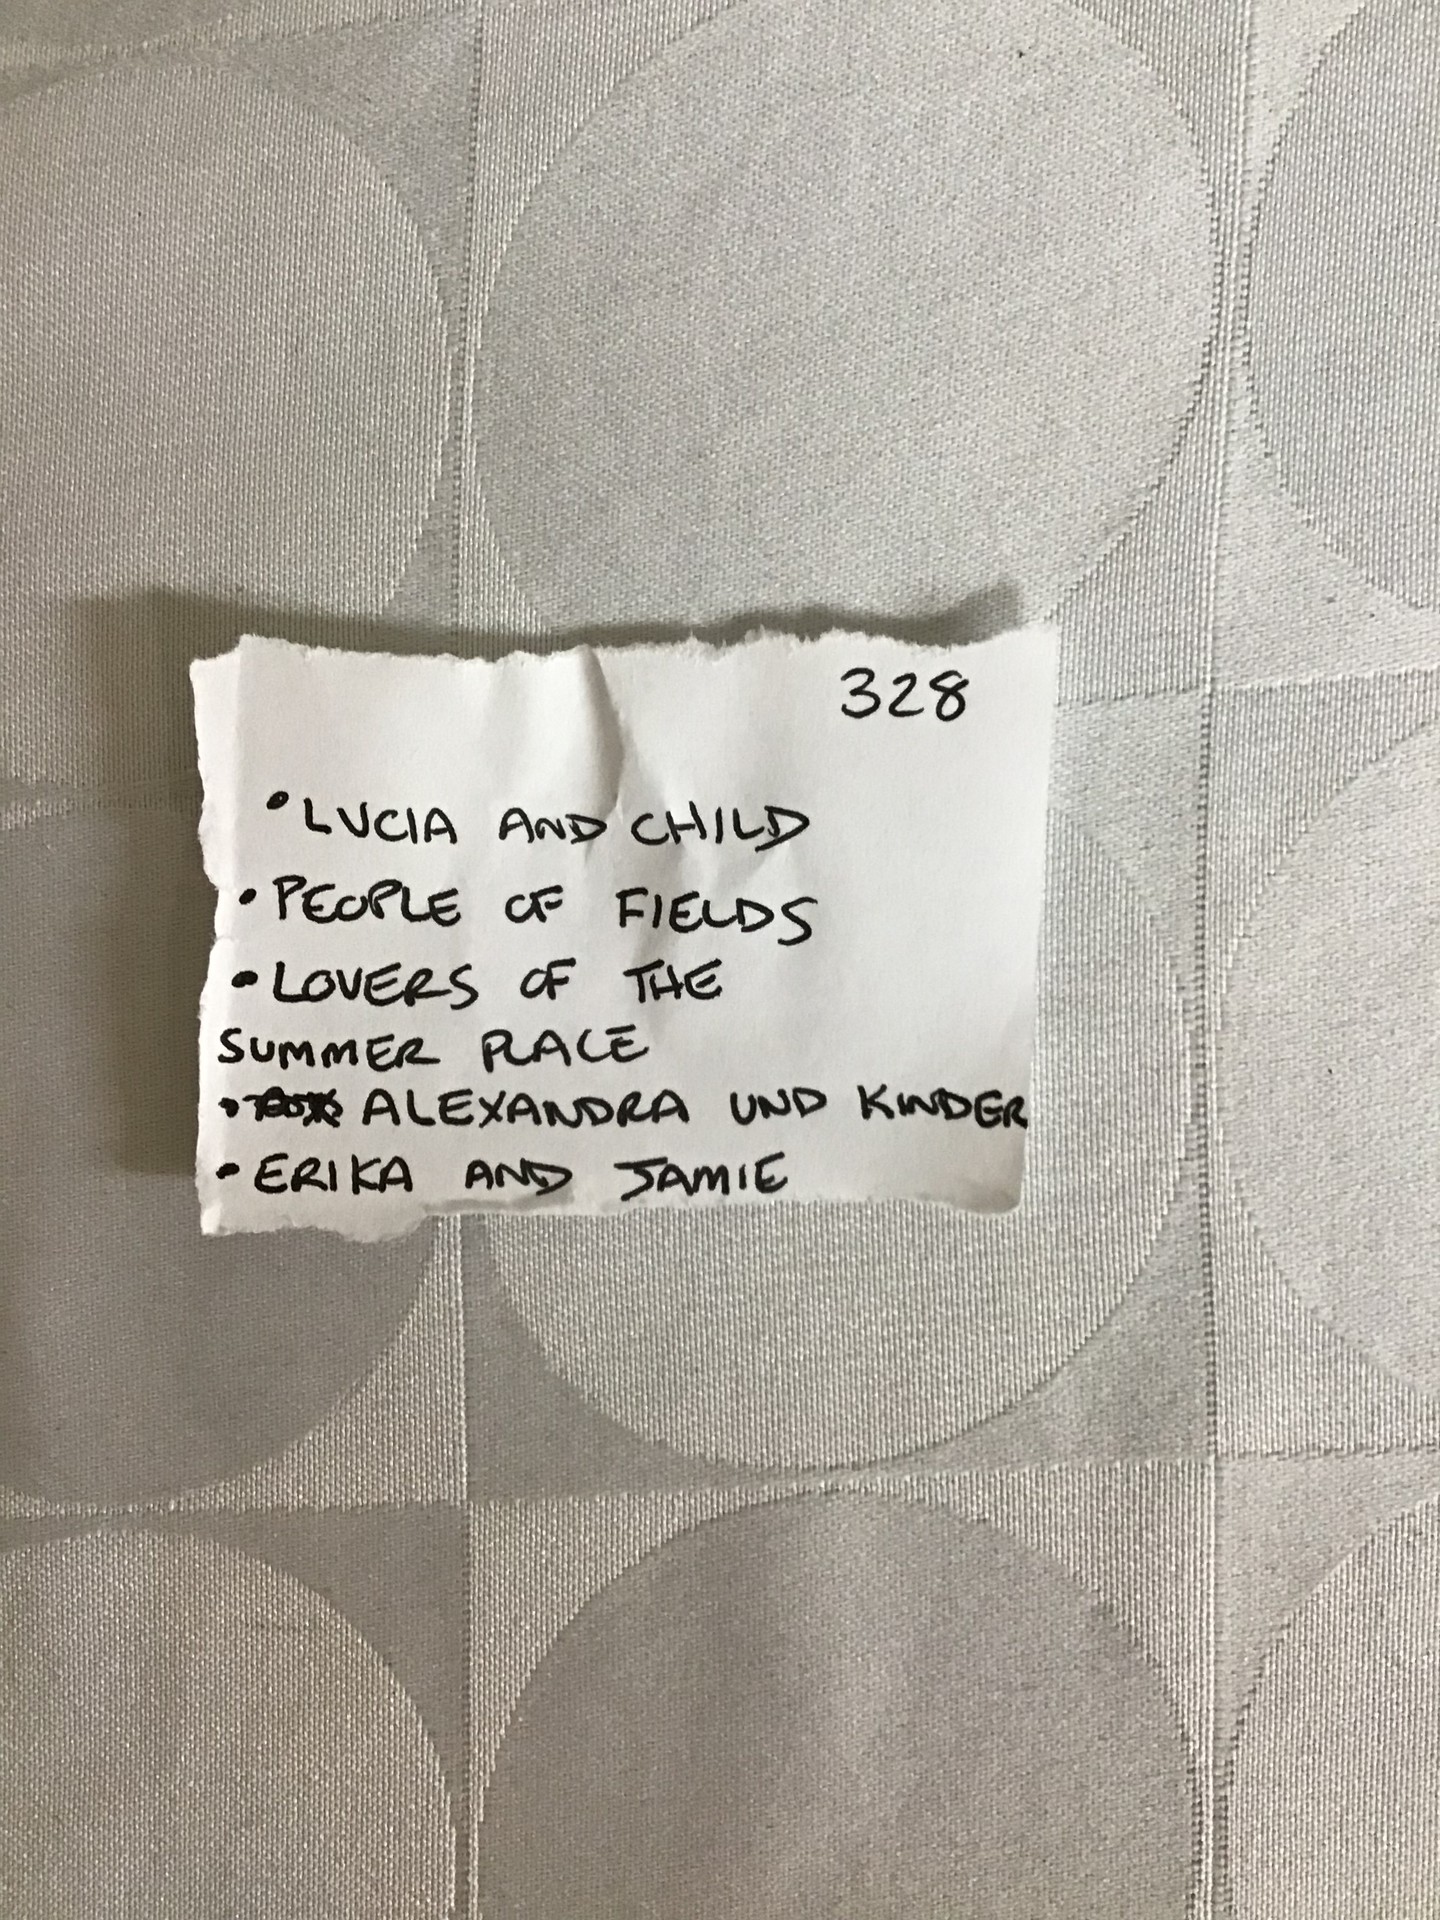 328
• LUCIA AND CHILD
• PEOPLE OF FIELDS
• LOVERS OF THE
SUMMER PLACE
• ALEXANDRA UND KINDER
• ERIKA AND JAMIE